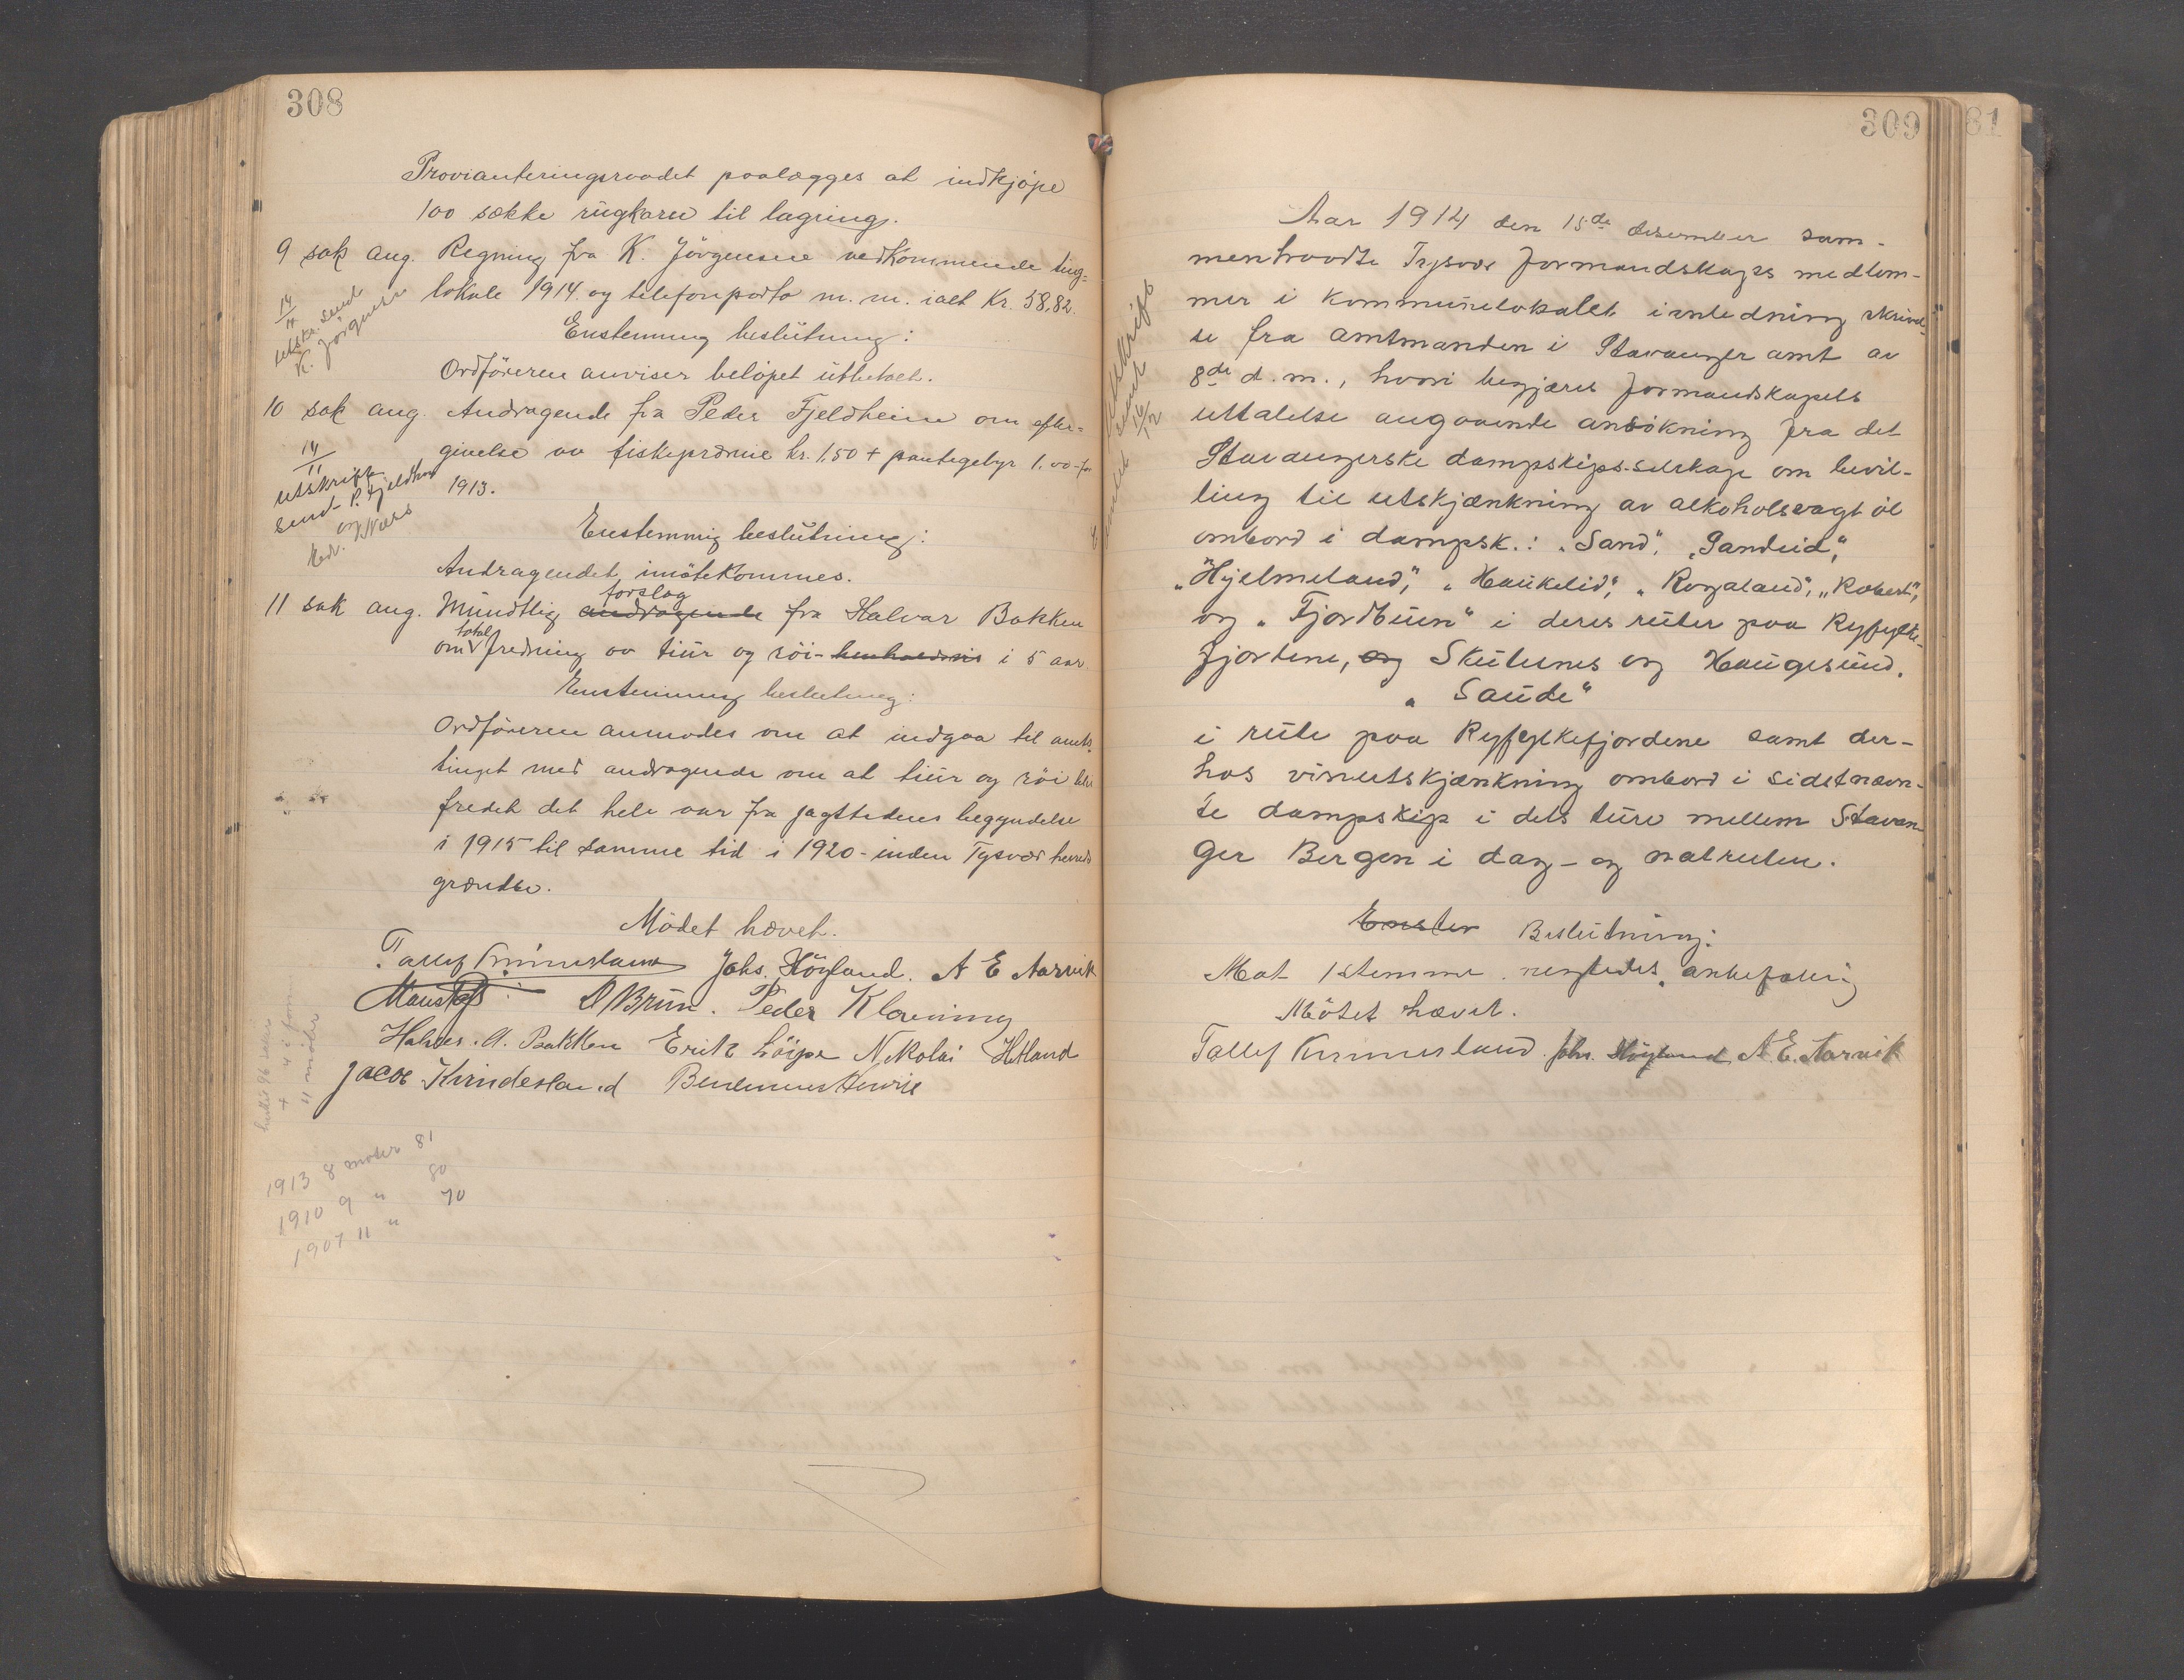 308
Provianteringsraadet paalægges at indkjøpe
100 sække rugkarn til lagring.
9 sak ang. Regning fra K. Jörgensen vedkommende ting-
lokale 1914 og telefonporto m. m. ialt Kr. 58,82.
14/11 utskr. sendt
K. Jörgensen
Enstemmig beslutning:
Ordföreren anviser belöpet utbetalt.
10 sak ang. Andragende fra Peder Fjeldheim om efter-
givelse av fiskepræmie kr. 1.50 + pantegebyr 1.00 for
1913.
14/11
utskrift
send P. Fjeldheim
og
Enstemmig beslutning:
Andragendet imötekommes.
11 sak ang. Mundtlig andragende forslag fra Halvar Bakken
om total fredning av tiur og röi i 5 aar.
Enstemmig beslutning:
Ordföreren anmodes om at indgaa til amts-
tinget med andragende om at tiur og röi blir
fredet det hele aar fra jagttidens begyndelse
i 1915 til samme tid i 1920 - inden Tysvær herreds
grændse.
Mödet hævet.
Tallef Kinnusland Johs. Höyland. A E Aarvik
O Brun. Peder Klovning
Halvar A. Bakken Erik Löipe Nikolai Hetland
Jacob Kvindesland
+ 4 i form
11 möter
1913 8 möter 81
1910 9 " 80
1907 11 " 70
309
Aar 1914 den 15de desember sam-
mentraadte Tysvær formandskaps medlem-
mer i kommunelokalet i anledning skrivel-
se fra amtmanden i Stavanger amt av
8de d. m., hvori begjæres formandskapets
uttalelse angaaende ansökning fra det
Stavangerske dampskips-selskap om bevil-
ling til utskjænkning av alkoholsvagt öl
ombord i dampsk.: "Sand", "Sandeid",
"Hjelmeland", "Haukelid", "Rogaland", "Robert",
og "Fjordbuen" i deres ruter paa Ryfylke-
fjordene, og Skutesnes og Haugesund.
"Saude"
i rute paa Ryfylkefjordene samt der-
hos vinutskjænkning ombord i sidstnævn-
te dampskip i dets ture mellem Stavan-
ger Bergen i dag- og natruten.
utskrift
sendt
16/12
Enstem Beslutning:
Mot 1 stemme negtedes anbefaling
Mötet hævet.
Tallef Kinnusland. Johs. Höyland A. E. Aarvik
31